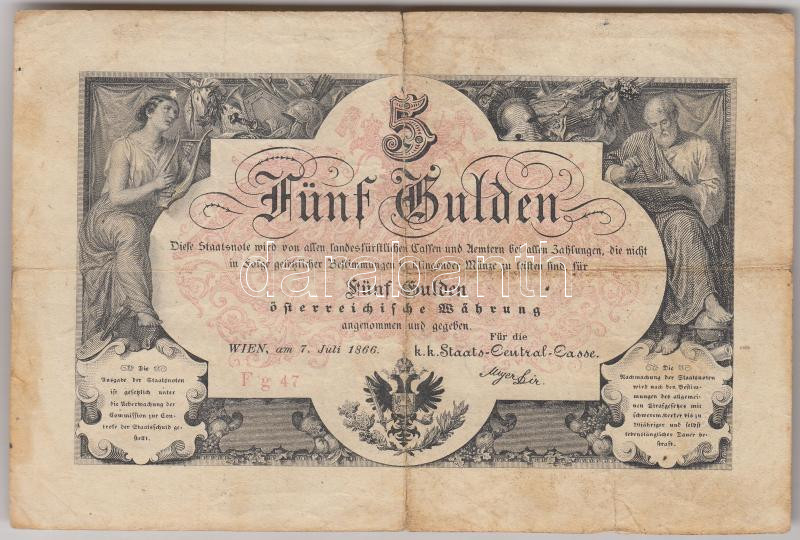 5
Fünf Gulden
Diese Staatsnote wird von allen landesfürstlichen Cassen und Aemtern bei allen Zahlungen, die nicht
in Folge gesetzlicher Bestimmungen in klingender Münze zu leisten sind, für
Fünf Gulden
österreichische Währung
angenommen und gegeben.
Für die
WIEN, am 7. Juli 1866. k.k. Staats-Central-Casse.
Fg 47
Die
Ausgabe der Staatsnoten
ist gesetzlich unter
die Ueberwachung der
Commission zur Con-
trole der Staatsschuld ge-
stellt.
Die
Nachmachung der Staatsnoten
wird nach den Bestim-
mungen des allgemei-
nen Strafgesetzes mit
schwerem Kerker bis zu
20jähriger und selbst
lebenslänglicher Dauer be-
straft.
darabanth